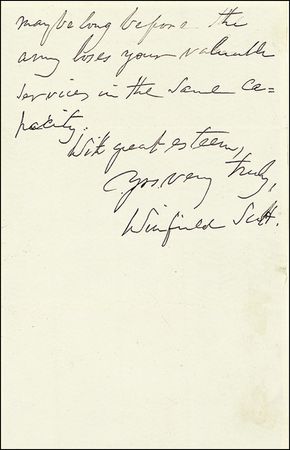 may be long before the
army loses your valuable
services in the same ca=
pacity.
With great esteem,
Yrs very truly,
Winfield Scott.